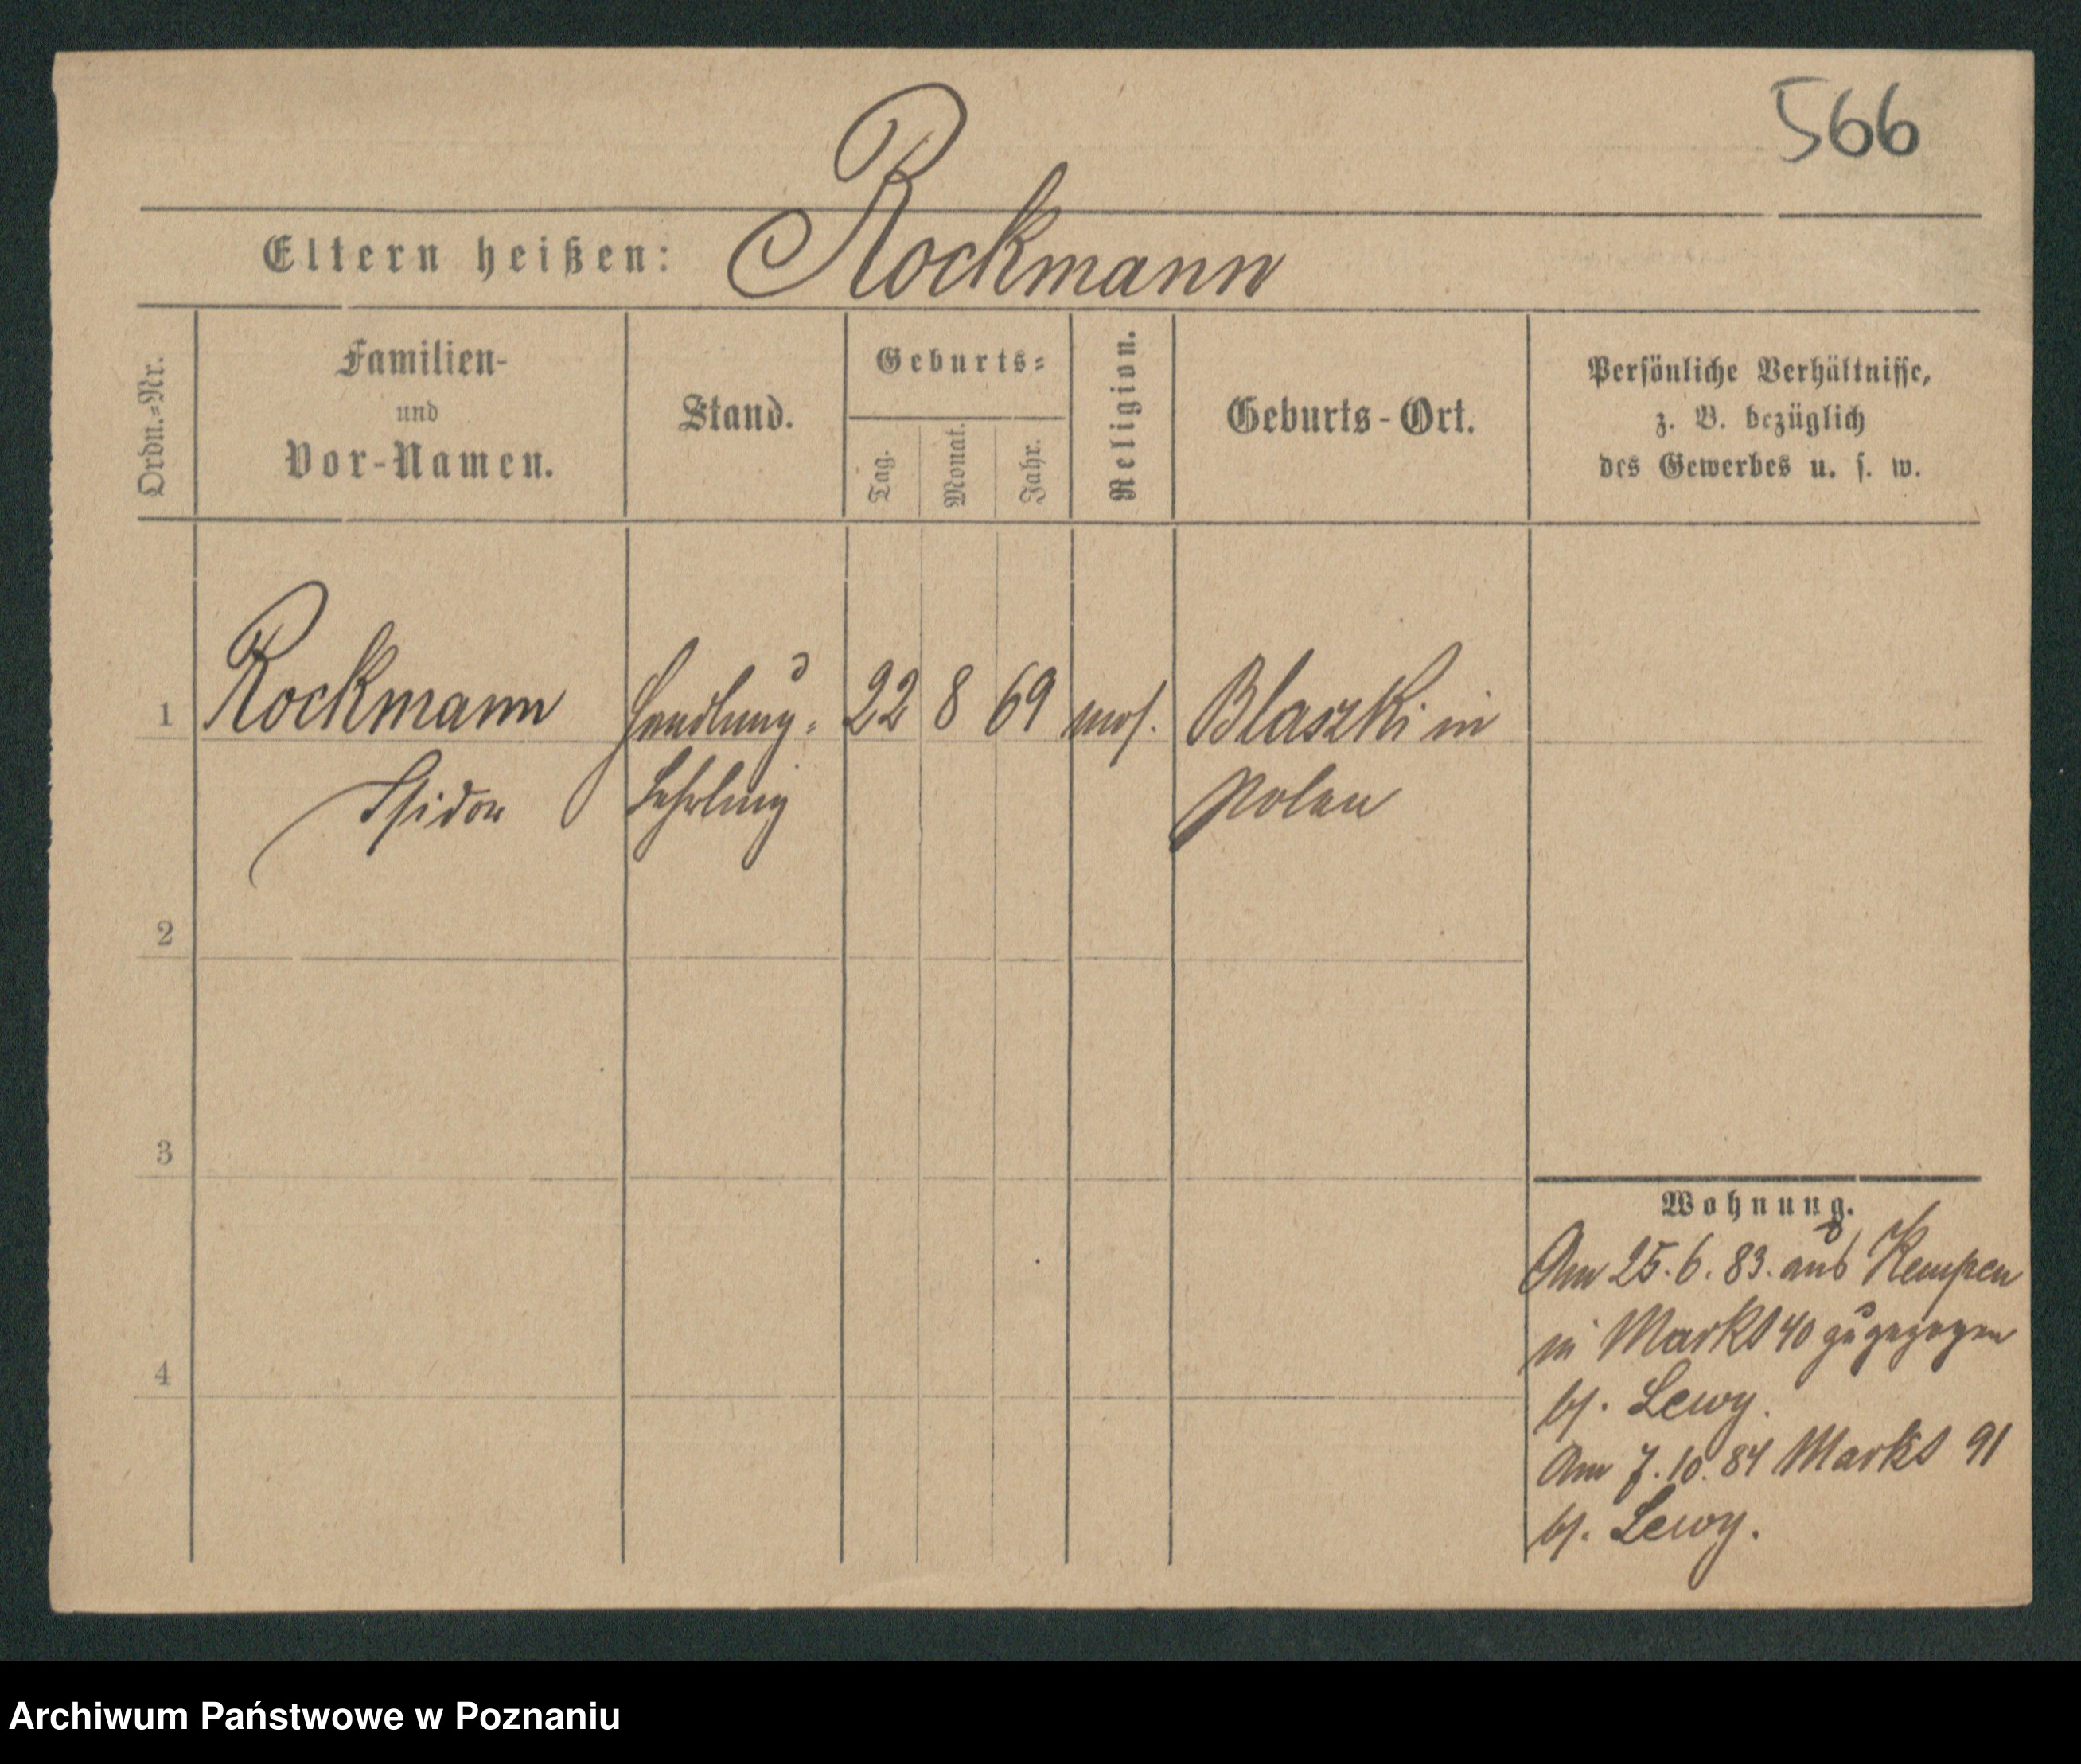 566
Rockmann
Eltern heißen:
Ordn.=Nr.
Familien-
und
Vor-Namen.
Stand.
Geburts=
Tag.
Monat.
Jahr.
Religion.
Geburts-Ort.
Persönliche Verhältnisse,
z. B. bezüglich
des Gewerbes u. s. w.
1 Rockmann Handlung= 22 8 69 mos. Blaszki in
Isidor Lehrling Polen
2
3
4
Wohnung.
Am 25.6.83. aus Kempen
in Markt 40 zugezogen
bs. Lewy.
Am 7.10.84 Markt 91
bs. Lewy.
Archiwum Państwowe w Poznaniu